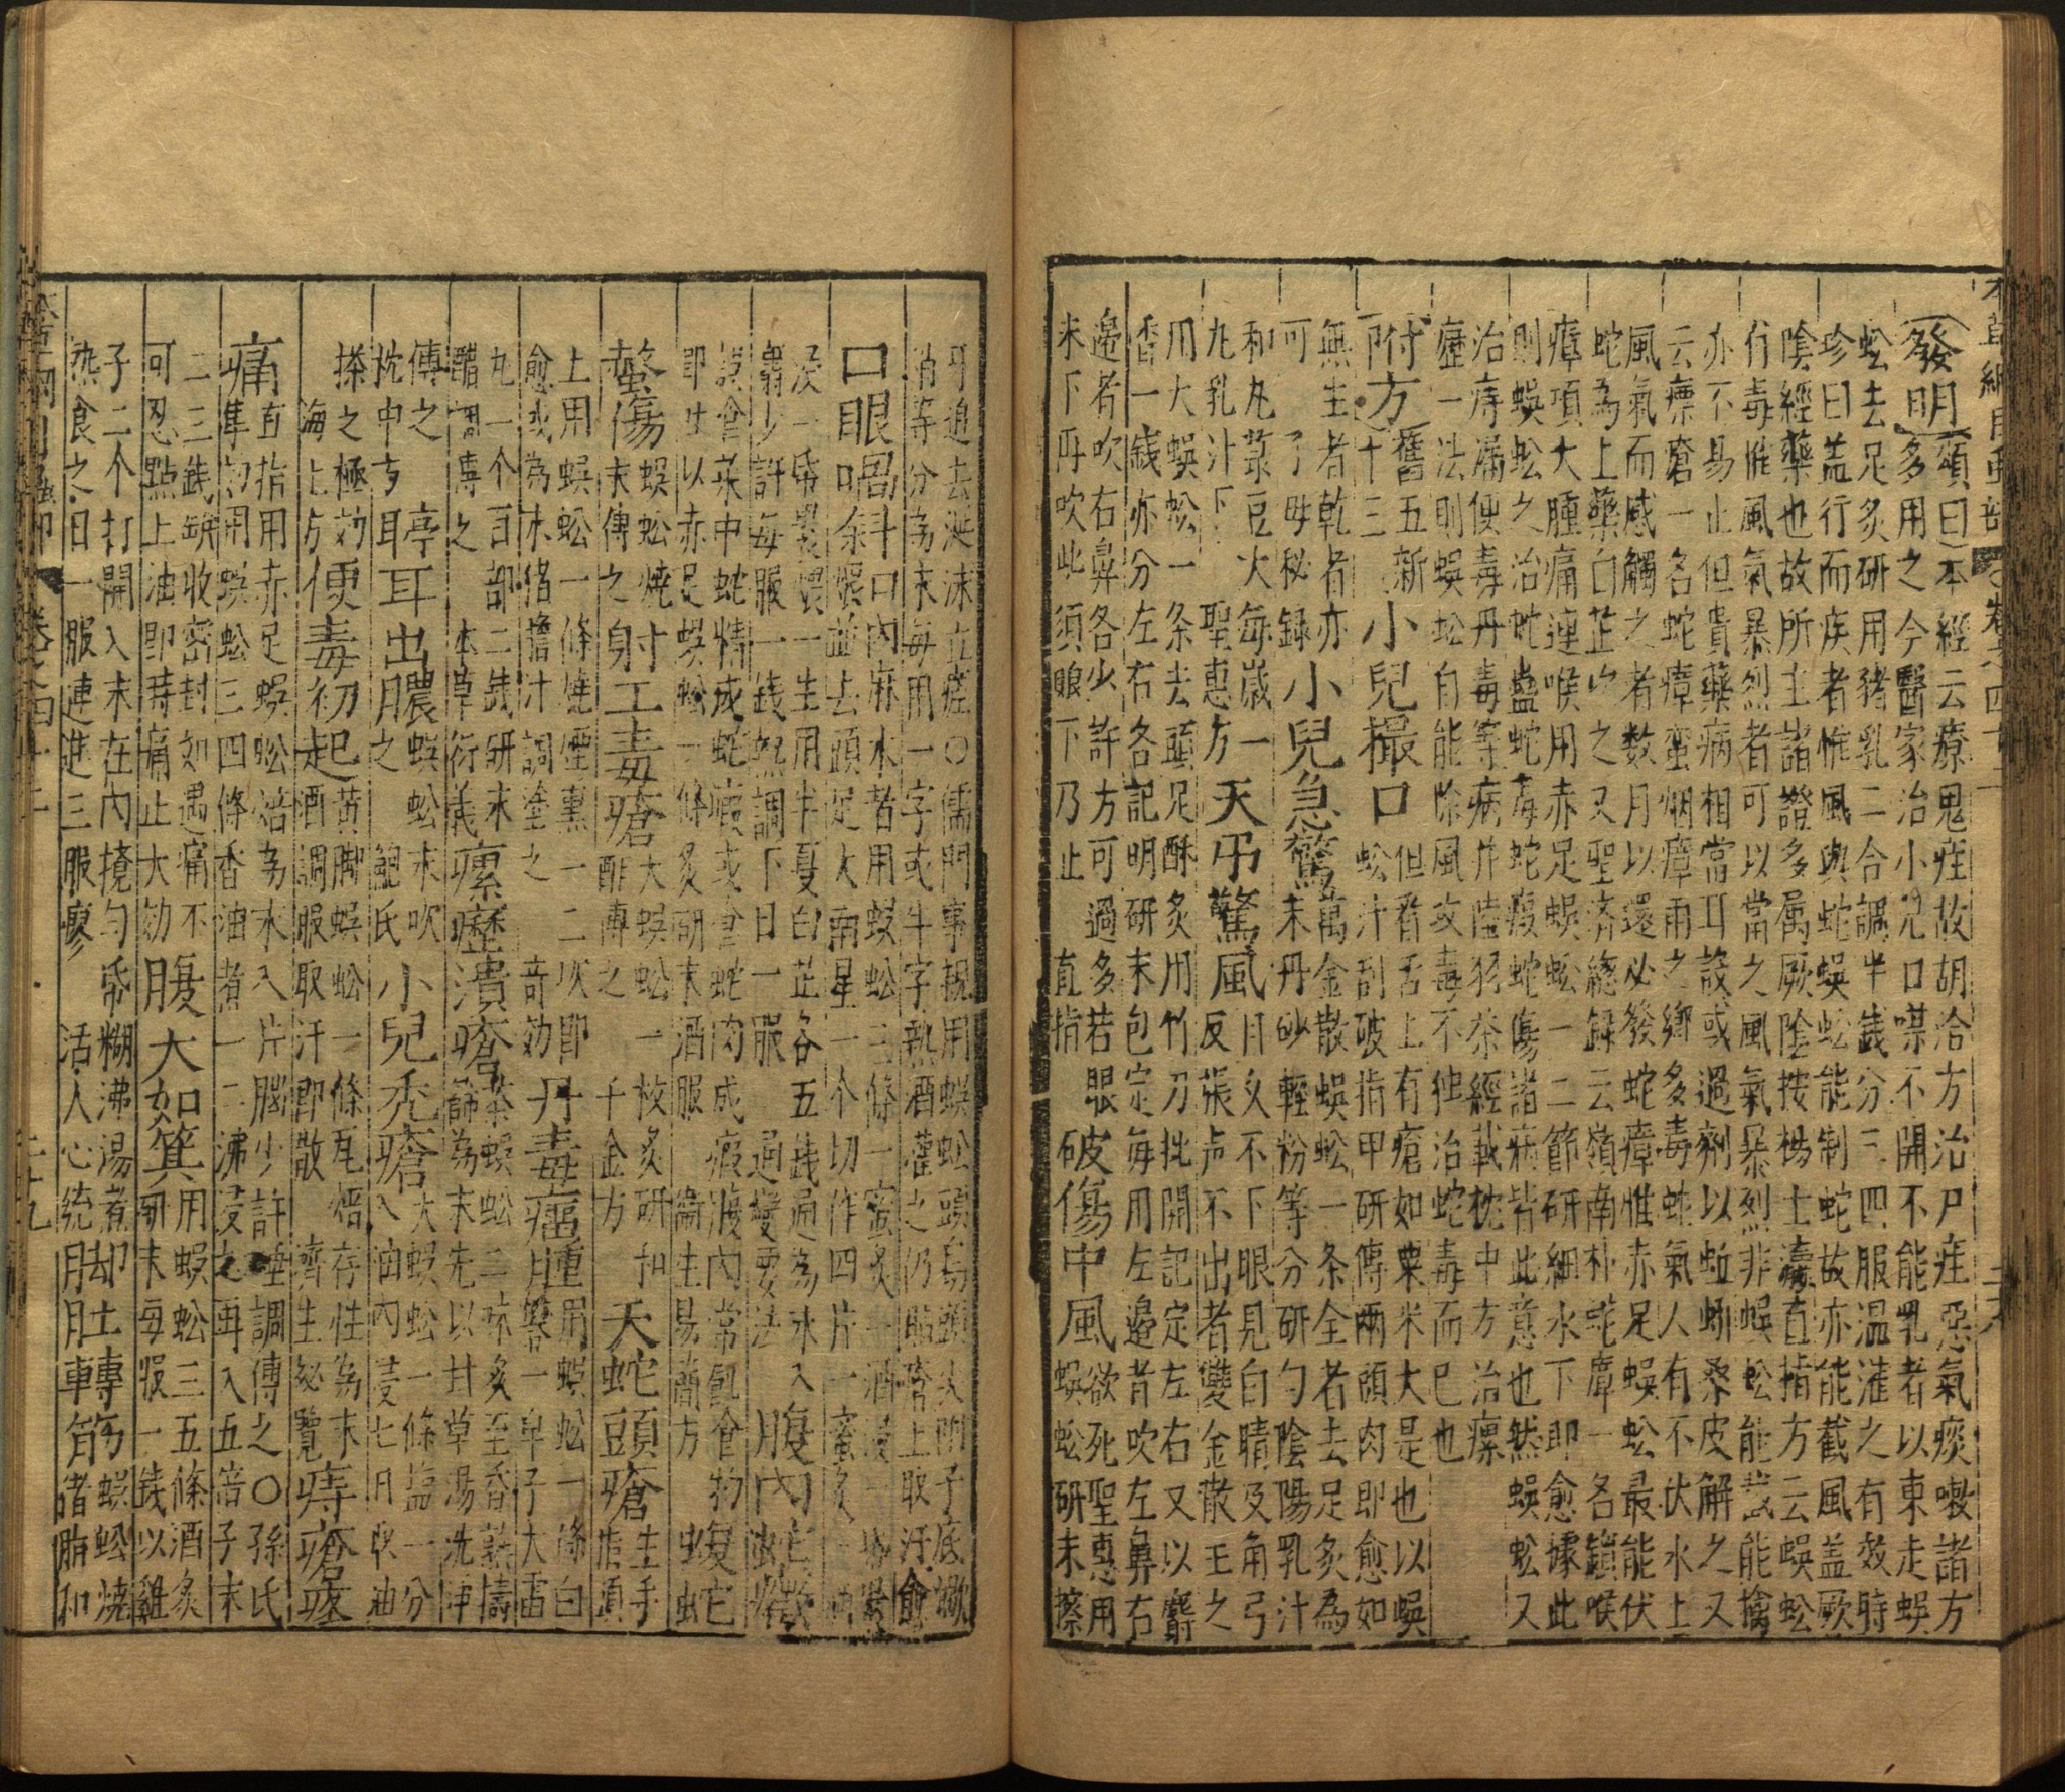 本草綱目蟲部 卷之四十二 二八
發明 頌曰本經云療鬼疰故胡洽方治尸疰惡氣痰嗽諸方
多用之今醫家治小兒口噤不開不能乳者以東走蜈
蚣去足炙研用猪乳二合調半錢分三四服温灌之有效時
珍曰盖行而疾者惟風與蛇蜈蚣能制蛇故亦能截風盖厥
陰經藥也故所主諸證多属厥陰按楊士瀛直指方云蜈蚣
有毒惟風氣暴烈者可以當之風氣暴烈非蜈蚣能截能擒
亦不易止但貴藥病相當耳設或過劑以蚯蚓桑皮解之又
云瘭瘡一名蛇瘴蛮烟瘴雨之鄉多毒蛇氣人有不伏水土
風氣而感觸之者数月以還必發蛇瘴惟赤足蜈蚣最能伏
蛇為上藥白芷次之又聖濟緫録云嶺南朴蛇瘴一名鎖喉
瘴項大腫痛連喉用赤足蜈蚣一二節研細水下即愈據此
則蜈蚣之治蛇蠱蛇毒蛇瘕蛇傷諸病皆此意也然蜈蚣又
治痔漏便毒丹毒等病并陸羽茶經載枕中方治瘰
癧一法則蜈蚣自能除風攻毒不独治蛇毒而已也
附方 舊五新十三
小兒撮口 但看舌上有瘡如粟米大是也以蜈
蚣汁刮破指甲研傅兩頭肉即愈如
無生者乾者亦
可 子母秘録
小兒急驚 萬金散蜈蚣一条全者去足炙為
末丹砂輕粉等分研匀陰陽乳汁
和丸菉豆大每歲一
丸乳汁下 聖惠方
天吊驚風 目久不下眼見白睛及角弓
反張声不出者雙金散主之
用大蜈蚣一条去頭足酥炙用竹刀批開記定左右又以麝
香一錢亦分左右各記明研末包定每用左邉者吹左鼻右
邉者吹右鼻各少許方可過多若眼
未下再吹此須眼下乃止 直指
破傷中風 欲死聖惠用
蜈蚣研末擦
牙追去涎沫立瘥○儒門事親用蜈蚣頭烏頭尖附子底蝎
梢等分為末每用一字或半字熱酒灌之仍貼瘡上取汗愈
口眼喎斜 口內麻木者用蜈蚣三條一蜜炙一酒浸一紙裹
煨並去頭足天南星一个切作四片一蜜炙一酒
浸一紙裹煨一生用半夏白芷各五錢通為末入
麝少許每服一錢熱調下日一服 通變要法
腹內蛇癥
誤食菜中蛇精成蛇瘕或食蛇肉成瘕腹內常飢食物復吐
即吐以赤足蜈蚣一條炙研末酒服 衛生易簡方
蝮蛇
螫傷 蜈蚣燒
末傅之
射工毒瘡 大蜈蚣一枚炙研和
酢傅之 千金方
天蛇頭瘡 生手
指頭
上用蜈蚣一條燒煙熏一二次即
愈或為末猪膽汁調塗之 奇効
丹毒瘤腫 用蜈蚣一條白
礬一皁子大雷
丸一个百部二錢研末
醋調傅之 本草衍義
瘰癧潰瘡 茶蜈蚣二味炙至香熟擣
篩為末先以甘草湯洗净
傅之
枕中方
聤耳出膿 蜈蚣末吹
之 鮑氏
小兒禿瘡 大蜈蚣一條塩一分
入油內浸七日取油
搽之極効
海上方
便毒初起 黄脚蜈蚣一條瓦焙存性為末
酒調服取汗即散 濟生秘覽
痔瘡疼
痛 直指用赤足蜈蚣焙為末入片腦少許唾調傅之○孫氏
集効用蜈蚣三四條香油煮一二沸浸之再入五倍子末
二三錢缾收密封如遇痛不
可忍點上油即時痛止大効
腹大如箕 用蜈蚣三五條酒炙
研末每服一錢以雞
子二个打開入末在內攪匀昏糊沸湯煮
熟食之日一服連進三服瘳 活人心統
脚肚轉筋 蜈蚣燒
猪脂和
本草綱目蟲部 卷之四十二 二十九